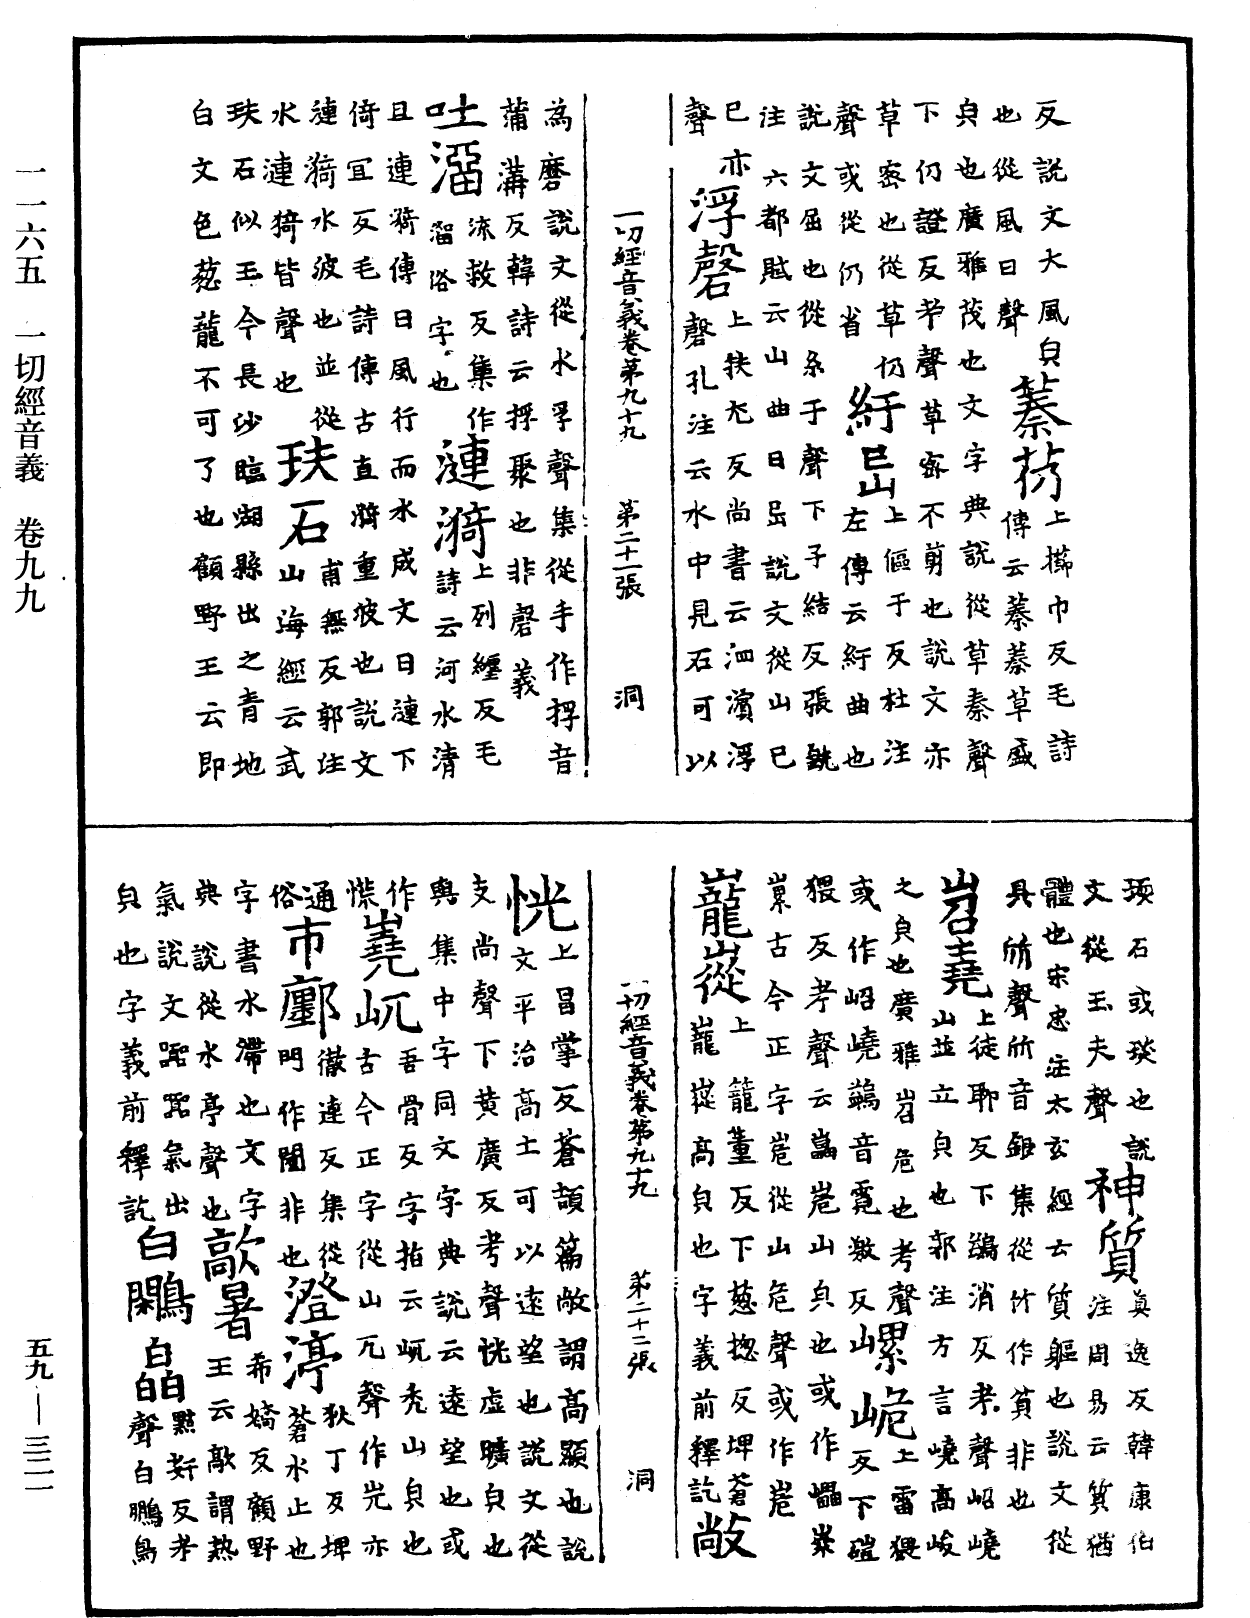 反說文大風皃也從風日聲
蓁芿上櫛巾反毛詩傳云蓁蓁草盛
皃也廣雅茂也文字典說從草秦聲
下仍證反考聲草密不剪也說文亦
草密也從草仍聲或從仍省
紆㠱上傴于反杜注左傳云紆曲也
說文屈也從糸于聲下子結反張銑
注六都賦云山曲曰㠱說文從山巳
巳亦聲
浮磬上扶尤反尚書云泗濱浮
磬孔注云水中見石可以
一切經音義卷第九十九 第二十一張 洞
為磨說文從水孚聲集從手作捊音
蒲溝反韓詩云捊聚也非磬義
吐溜流救反集作澑俗字也
漣漪上列纏反毛詩云河水清
且連漪傳曰風行而水成文曰漣下
倚宜反毛詩傳古直漪重波也說文
漣漪水波也並從水連猗皆聲也
玞石甫無反郭注山海經云武
玞石似玉今長沙臨湘縣出之青地
白文色葱蘢不可了也顧野王云即
瑌石或琰也說文從玉夫聲
神質真逸反韓康伯注周易云質猶
體也宋忠注太玄經云質軀也說文從
貝斦聲斦音銀集從竹作質非也
岧嶤上徒聊反下鷂消反考聲岹嶢
山並立皃也郭注方言嶢高峻
之皃也廣雅岧危也考聲
或作岹嶢鷂音霓激反
㠥峗上雷猥反下磑
猥反考聲云嵓峞山皃也或作㠥
古今正字峞從山危聲或作峞
巃嵷上籠董反下葱揔反埤蒼
巃嵷高皃也字義前釋訖
一切經音義卷第九十九 第二十二張 洞
敞恍上昌掌反蒼頡篇敞謂高顯也說
文平治高土可以遠望也說文從
支尚聲下黃廣反考聲恍虛曠皃也
與集中字同文字典說云遠望也或
作慌
嶤屼吾骨反字指云屼禿山皃也
古今正字從山兀聲作岉亦
通俗
市鄽徹連反集從門作闤非也
澄渟狄丁反埤蒼水止也
字書水滯也文字典說從水亭聲也
歊暑希嬌反顧野王云歊謂熱
氣說文歊歊氣出皃也字義前釋訖
白鷴皛黠姦反考聲白鷴鳥
一一六五 一切經音義 卷九九
五九—三二一